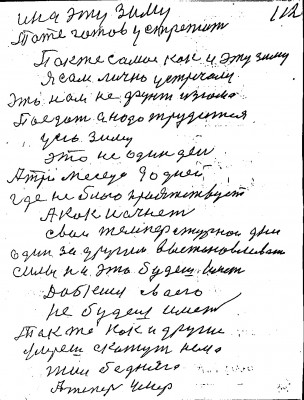 и на эту зиму
112
Тоже готов устретит
Так же само как и эту зиму
Я сам лично устречал
Это нам не фунт изюма
Поезат а надо трудится
усю зиму
это не один ден
А три меседе 90 дней
где не было прядствует
А как начнет
свои температурной дни
один за другим выстановливат
силы на это будеш имет
Довкия своего
не будеш имет
Также как и другие
умреш скажут немо
жил бедняга
А тепер умер